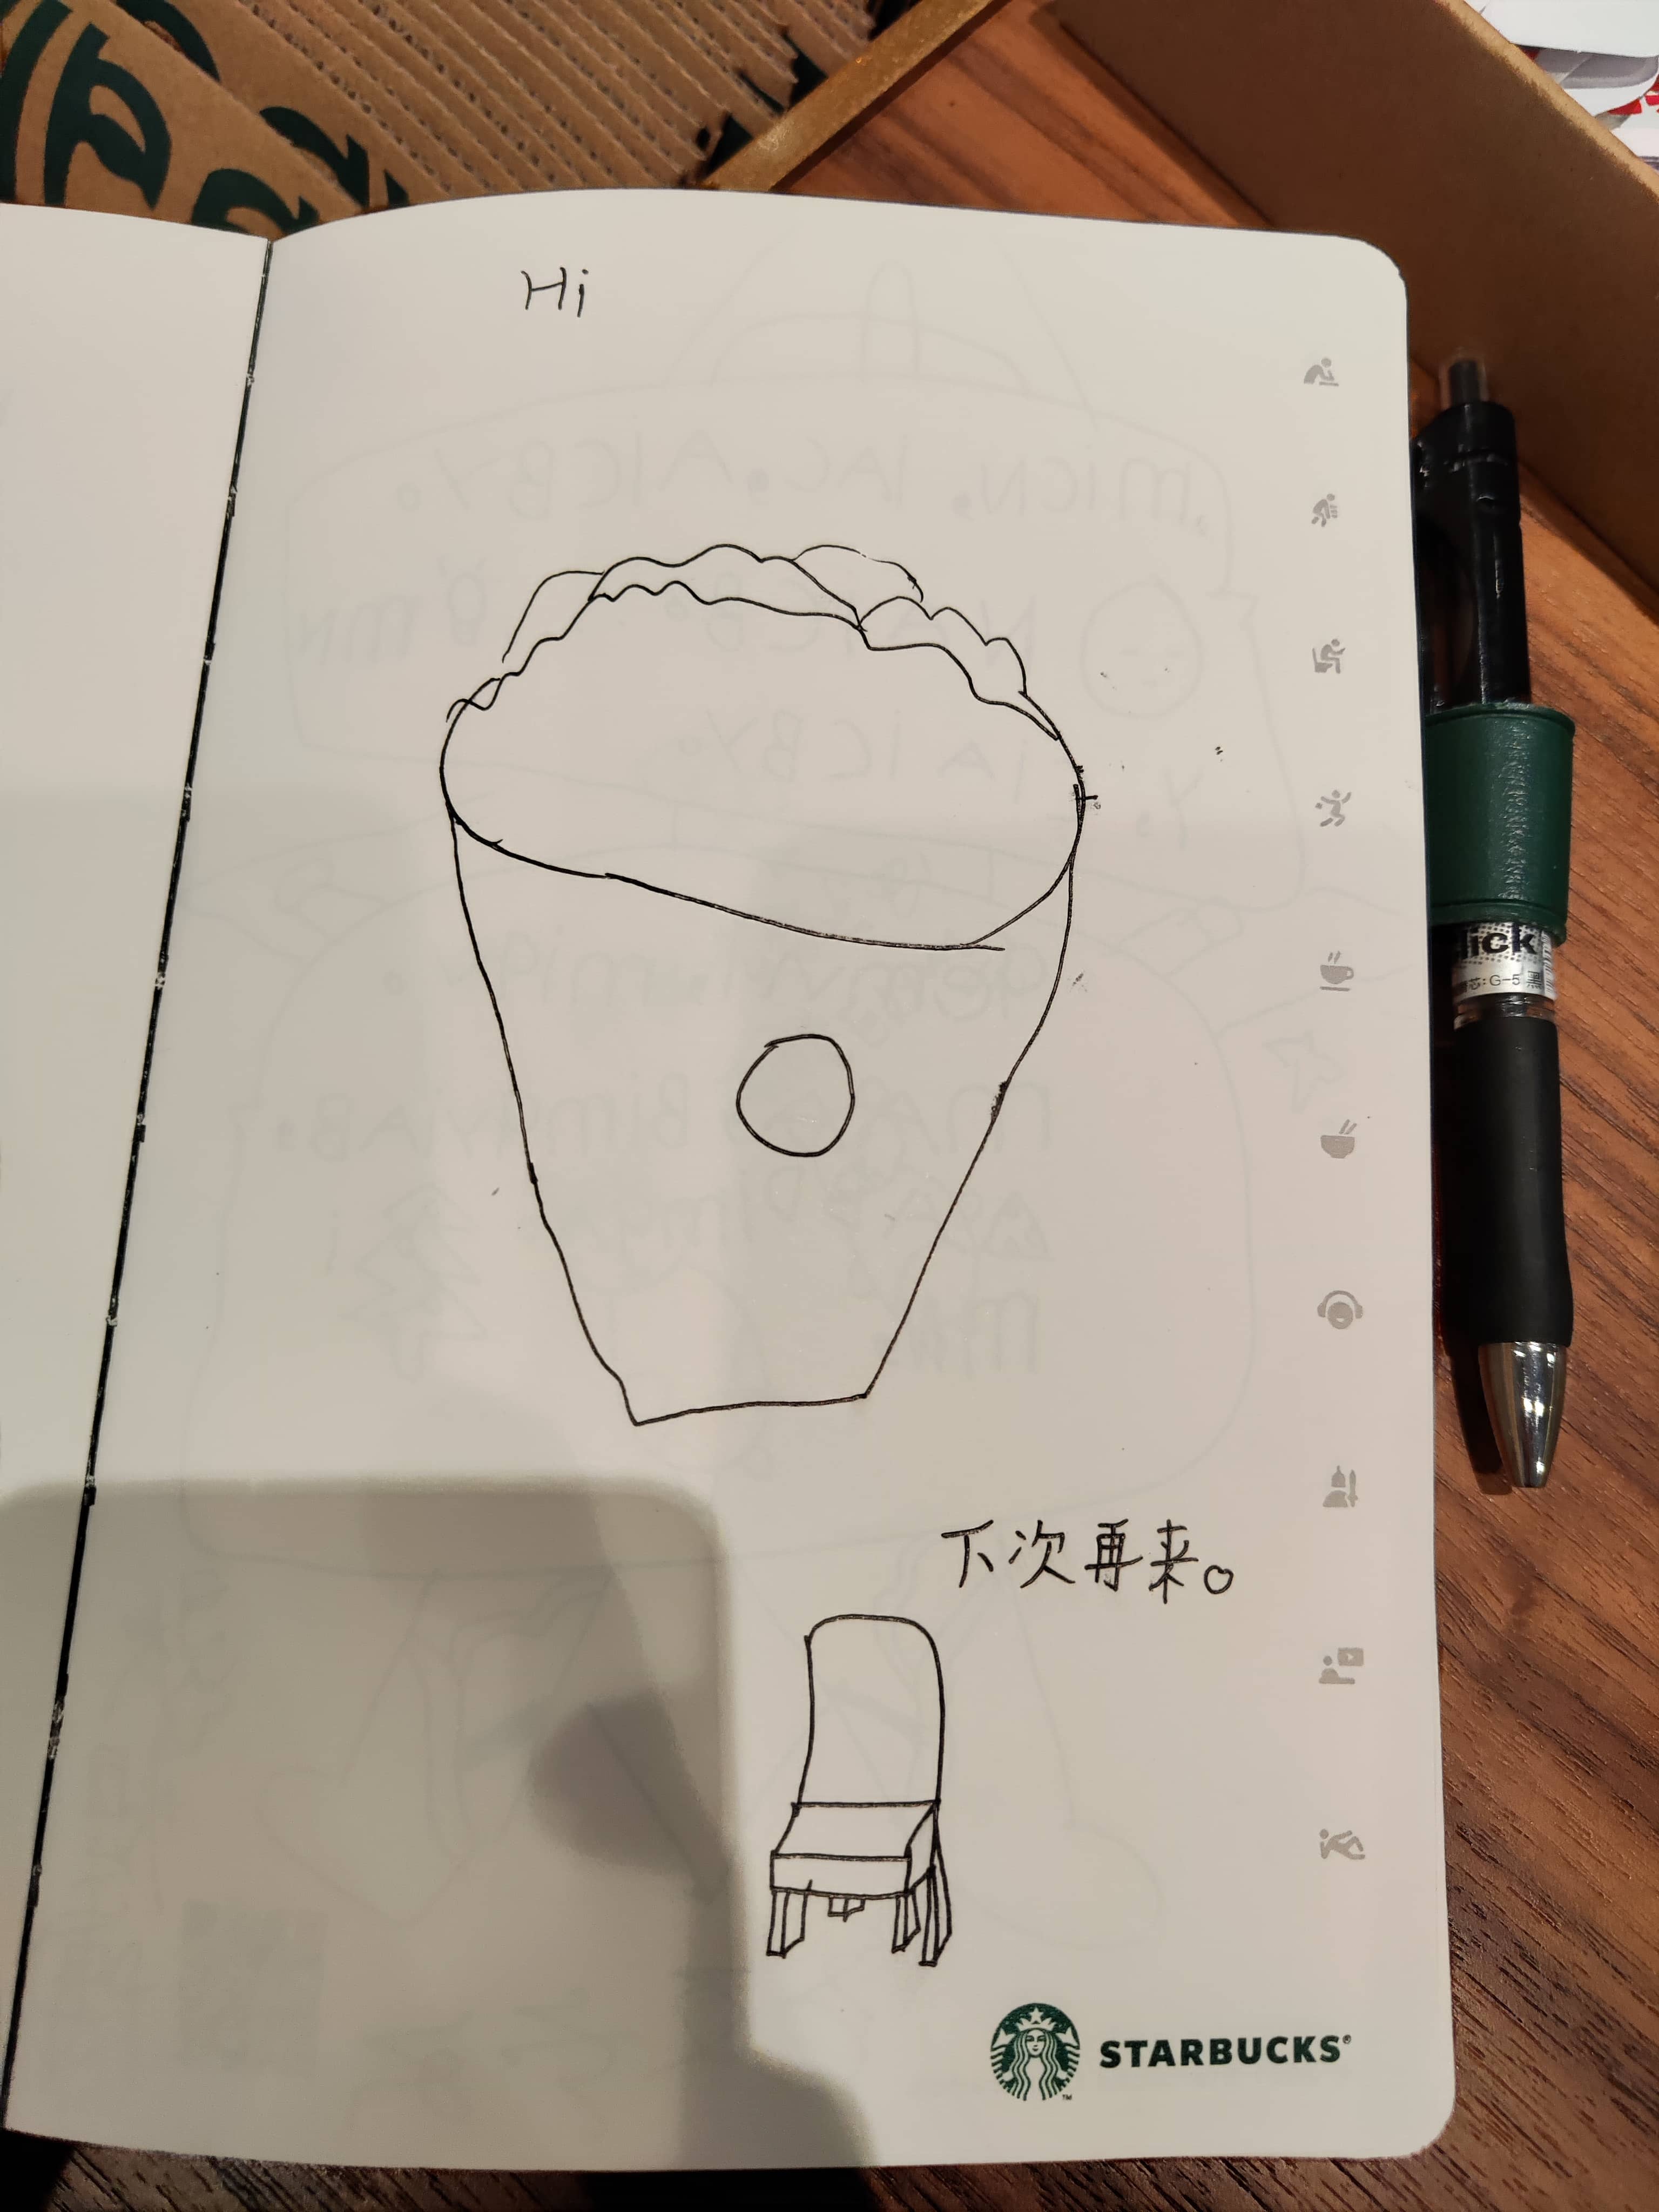 Hi
下次再来。
STARBUCKS®
lick
芯:G-5 黑